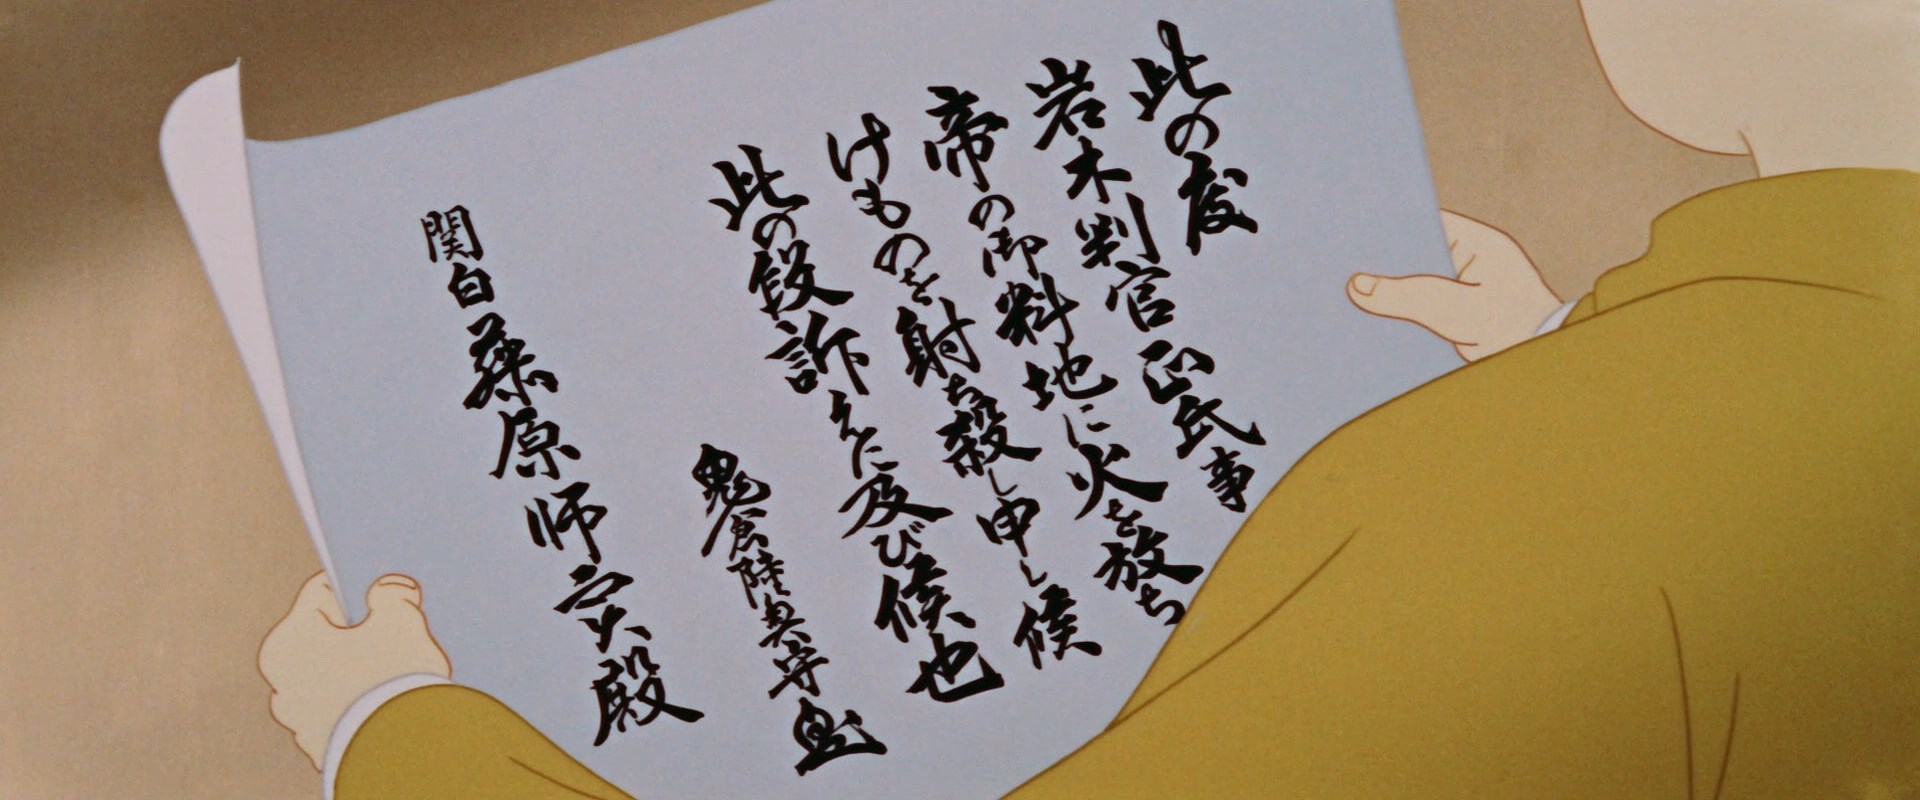 此の度
岩木判官正氏事
帝の御料地に火を放ち
けものを射ち殺し申し候
此の段訴えに及び候也
鬼倉陸奥守
関白藤原師実殿